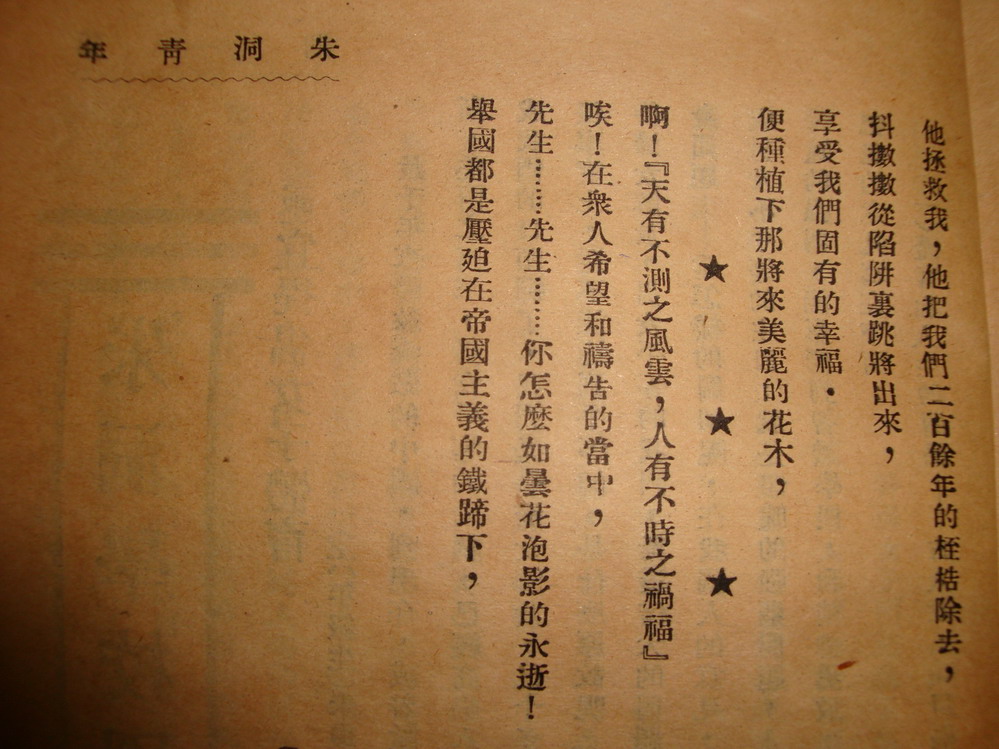 朱洞靑年
他拯救我，他把我們二百餘年的桎梏除去，
抖擻擻從陷阱裏跳將出來，
享受我們固有的幸福．
便種植下那將來美麗的花木，
★ ★ ★
啊！『天有不測之風雲，人有不時之禍福』
唉！在衆人希望和禱吿的當中，
先生………先生………你怎麼如曇花泡影的永逝！
舉國都是壓迫在帝國主義的鐵蹄下，